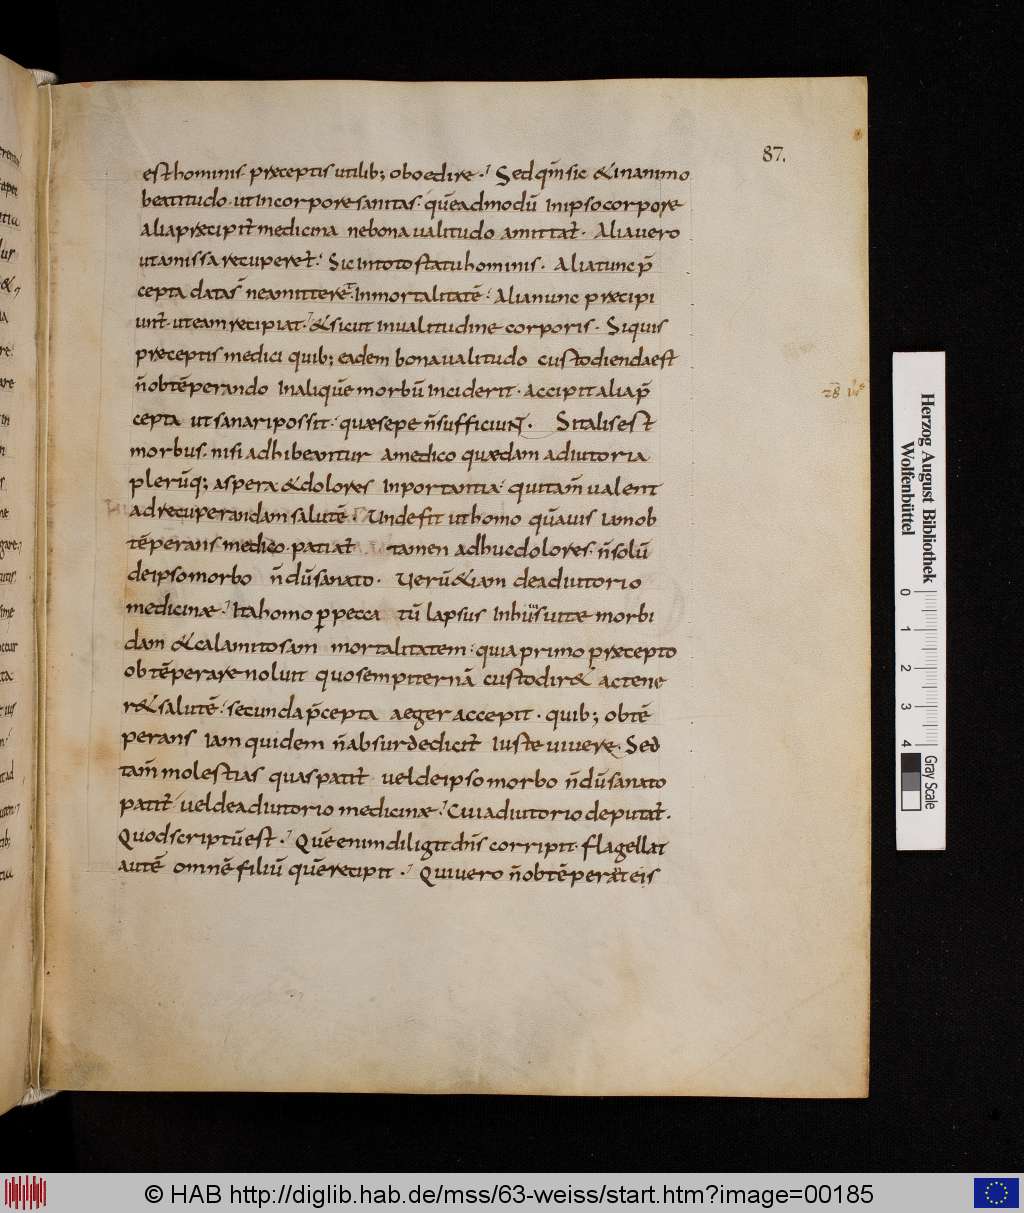 87.
est hominis. præceptis utilib; oboedire. Sed qm̄ sic & in animo
beatitudo. ut in corpore sanitas: quēadmodū in ipso corpore
alia præcipit̄ medicina ne bona ualitudo amittat̄. Alia uero
ut amissa recuperet̄. Sic in toto statu hominis. Alia tunc p̄
cepta data s̄ ne amitteret Inmortalitatē. Alia nunc præcipi
unt̄. ut eam recipiat. & sicut in ualitudine corporis. Si quis
præceptis medici quib; eadem bona ualitudo custodienda est
n̄ obtēperando In aliquē morbū Inciderit. accipit alia p̄
cepta ut sanari possit. quæ sepe n̄ sufficiunt. Si talis est
morbus. nisi adhibeantur a medico quædam adiutoria
plerūq; aspera & dolores Inportantia. qui tam̄ ualent
ad recuperandam salutē. Unde fit ut homo quāuis iam ob
tēperans medico. patiat̄ tamen adhuc dolores. n̄ solū
de ipso morbo n̄dū sanato. Uerū & iam de adiutorio
medicinæ. Ita homo p̱ pecca tū lapsus In huius uitæ morbi
dam & calamitosam mortalitatem. quia primo præcepto
obtēperare noluit quo sempiternā custodir& ac tene
r& salutē. secunda p̄cepta aeger accepit. quib; obtē
perans iam quidem n̄ absurde dicit̄ iuste uiuere. Sed
tam̄ molestias quas patit̄ uel de ipso morbo n̄dū sanato
patit̄ uel de adiutorio medicinæ. Cui adiutorio deputat̄.
Quod scriptū est. Quē enim diligit dn̄s corripit. flagellat
autē omnē filiū quē recipit. Qui uero n̄ obtēperat eis
Herzog August Bibliothek
Wolfenbüttel
0 1 2 3 4
Gray Scale
© HAB http://diglib.hab.de/mss/63-weiss/start.htm?image=00185